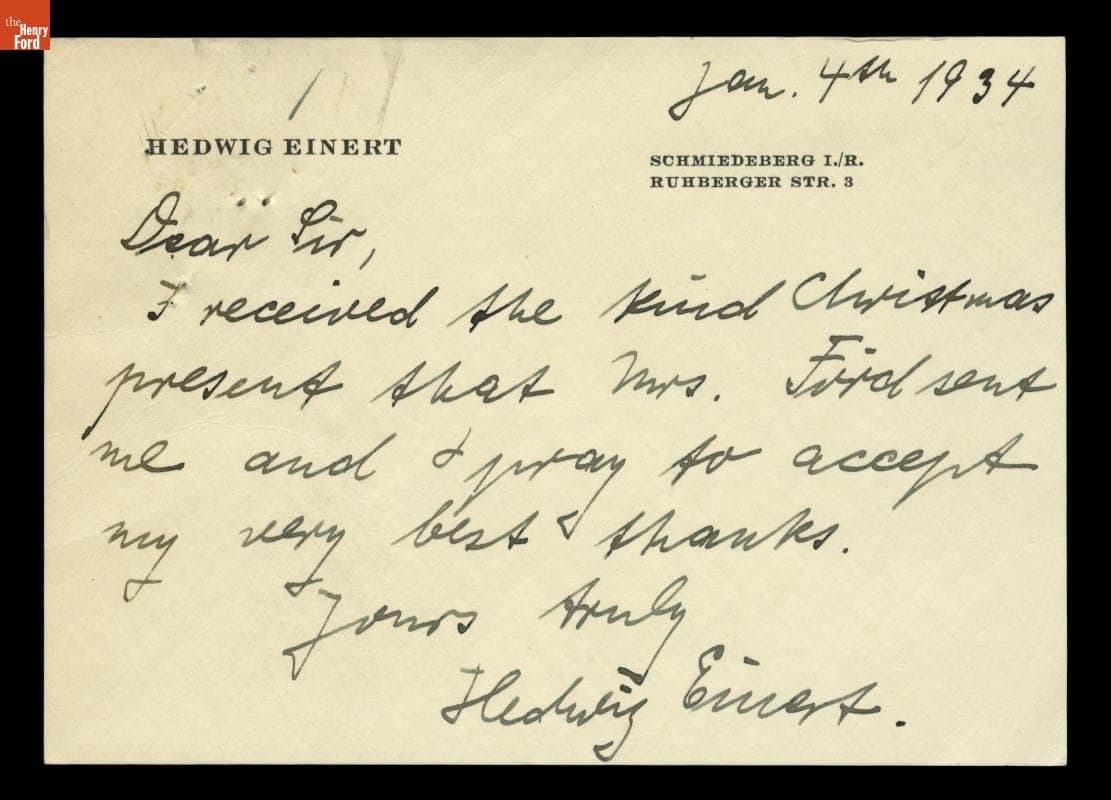 the
Henry
Ford
Jan. 4th 1934
HEDWIG EINERT
SCHMIEDEBERG I./R.
RUHBERGER STR. 3
Dear Sir,
I received the kind Christmas
present that Mrs. Ford sent
me and I pray to accept
my very best thanks.
Yours truly
Hedwig Einert.